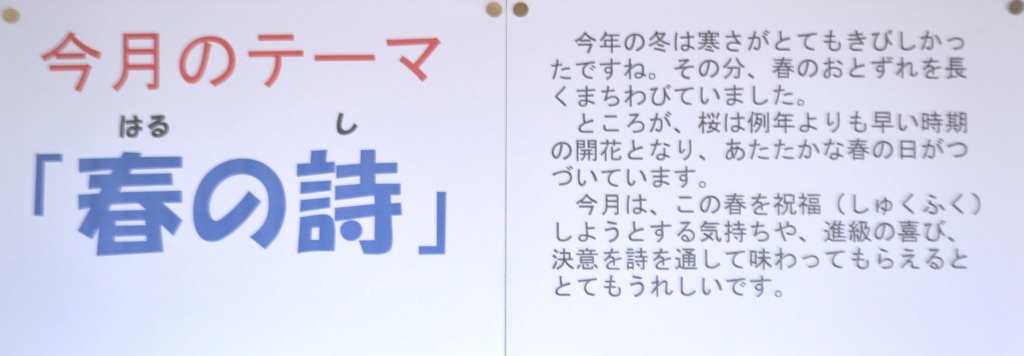 今月のテーマ
はる し
「春の詩」
今年の冬は寒さがとてもきびしかっ
たですね。その分、春のおとずれを長
くまちわびていました。
ところが、桜は例年よりも早い時期
の開花となり、あたたかな春の日がつ
づいています。
今月は、この春を祝福（しゅくふく）
しようとする気持ちや、進級の喜び、
決意を詩を通して味わってもらえると
とてもうれしいです。